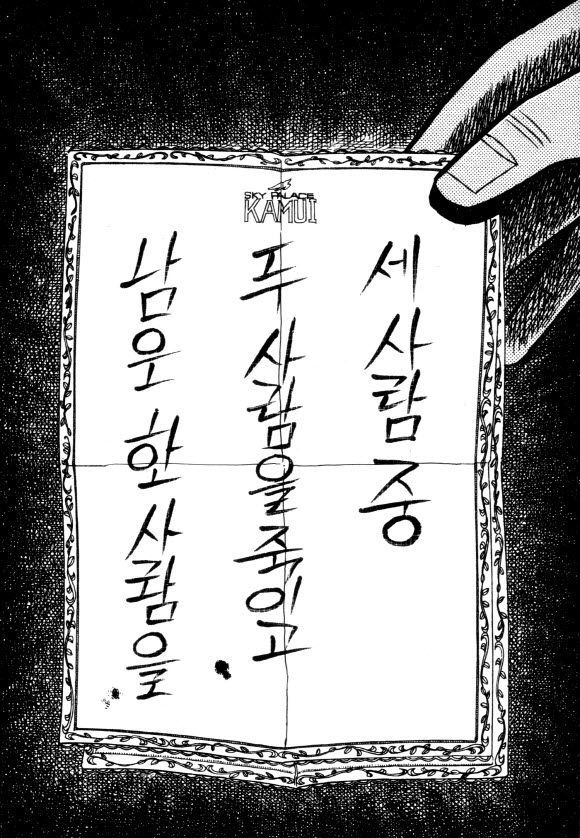 SKY PALACE
KAMUI
세 사람 중
두 사람을 죽이고
남은 한 사람을